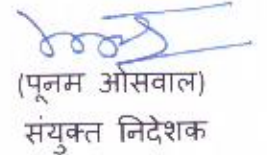 (पूनम ओसवाल)
संयुक्त निदेशक